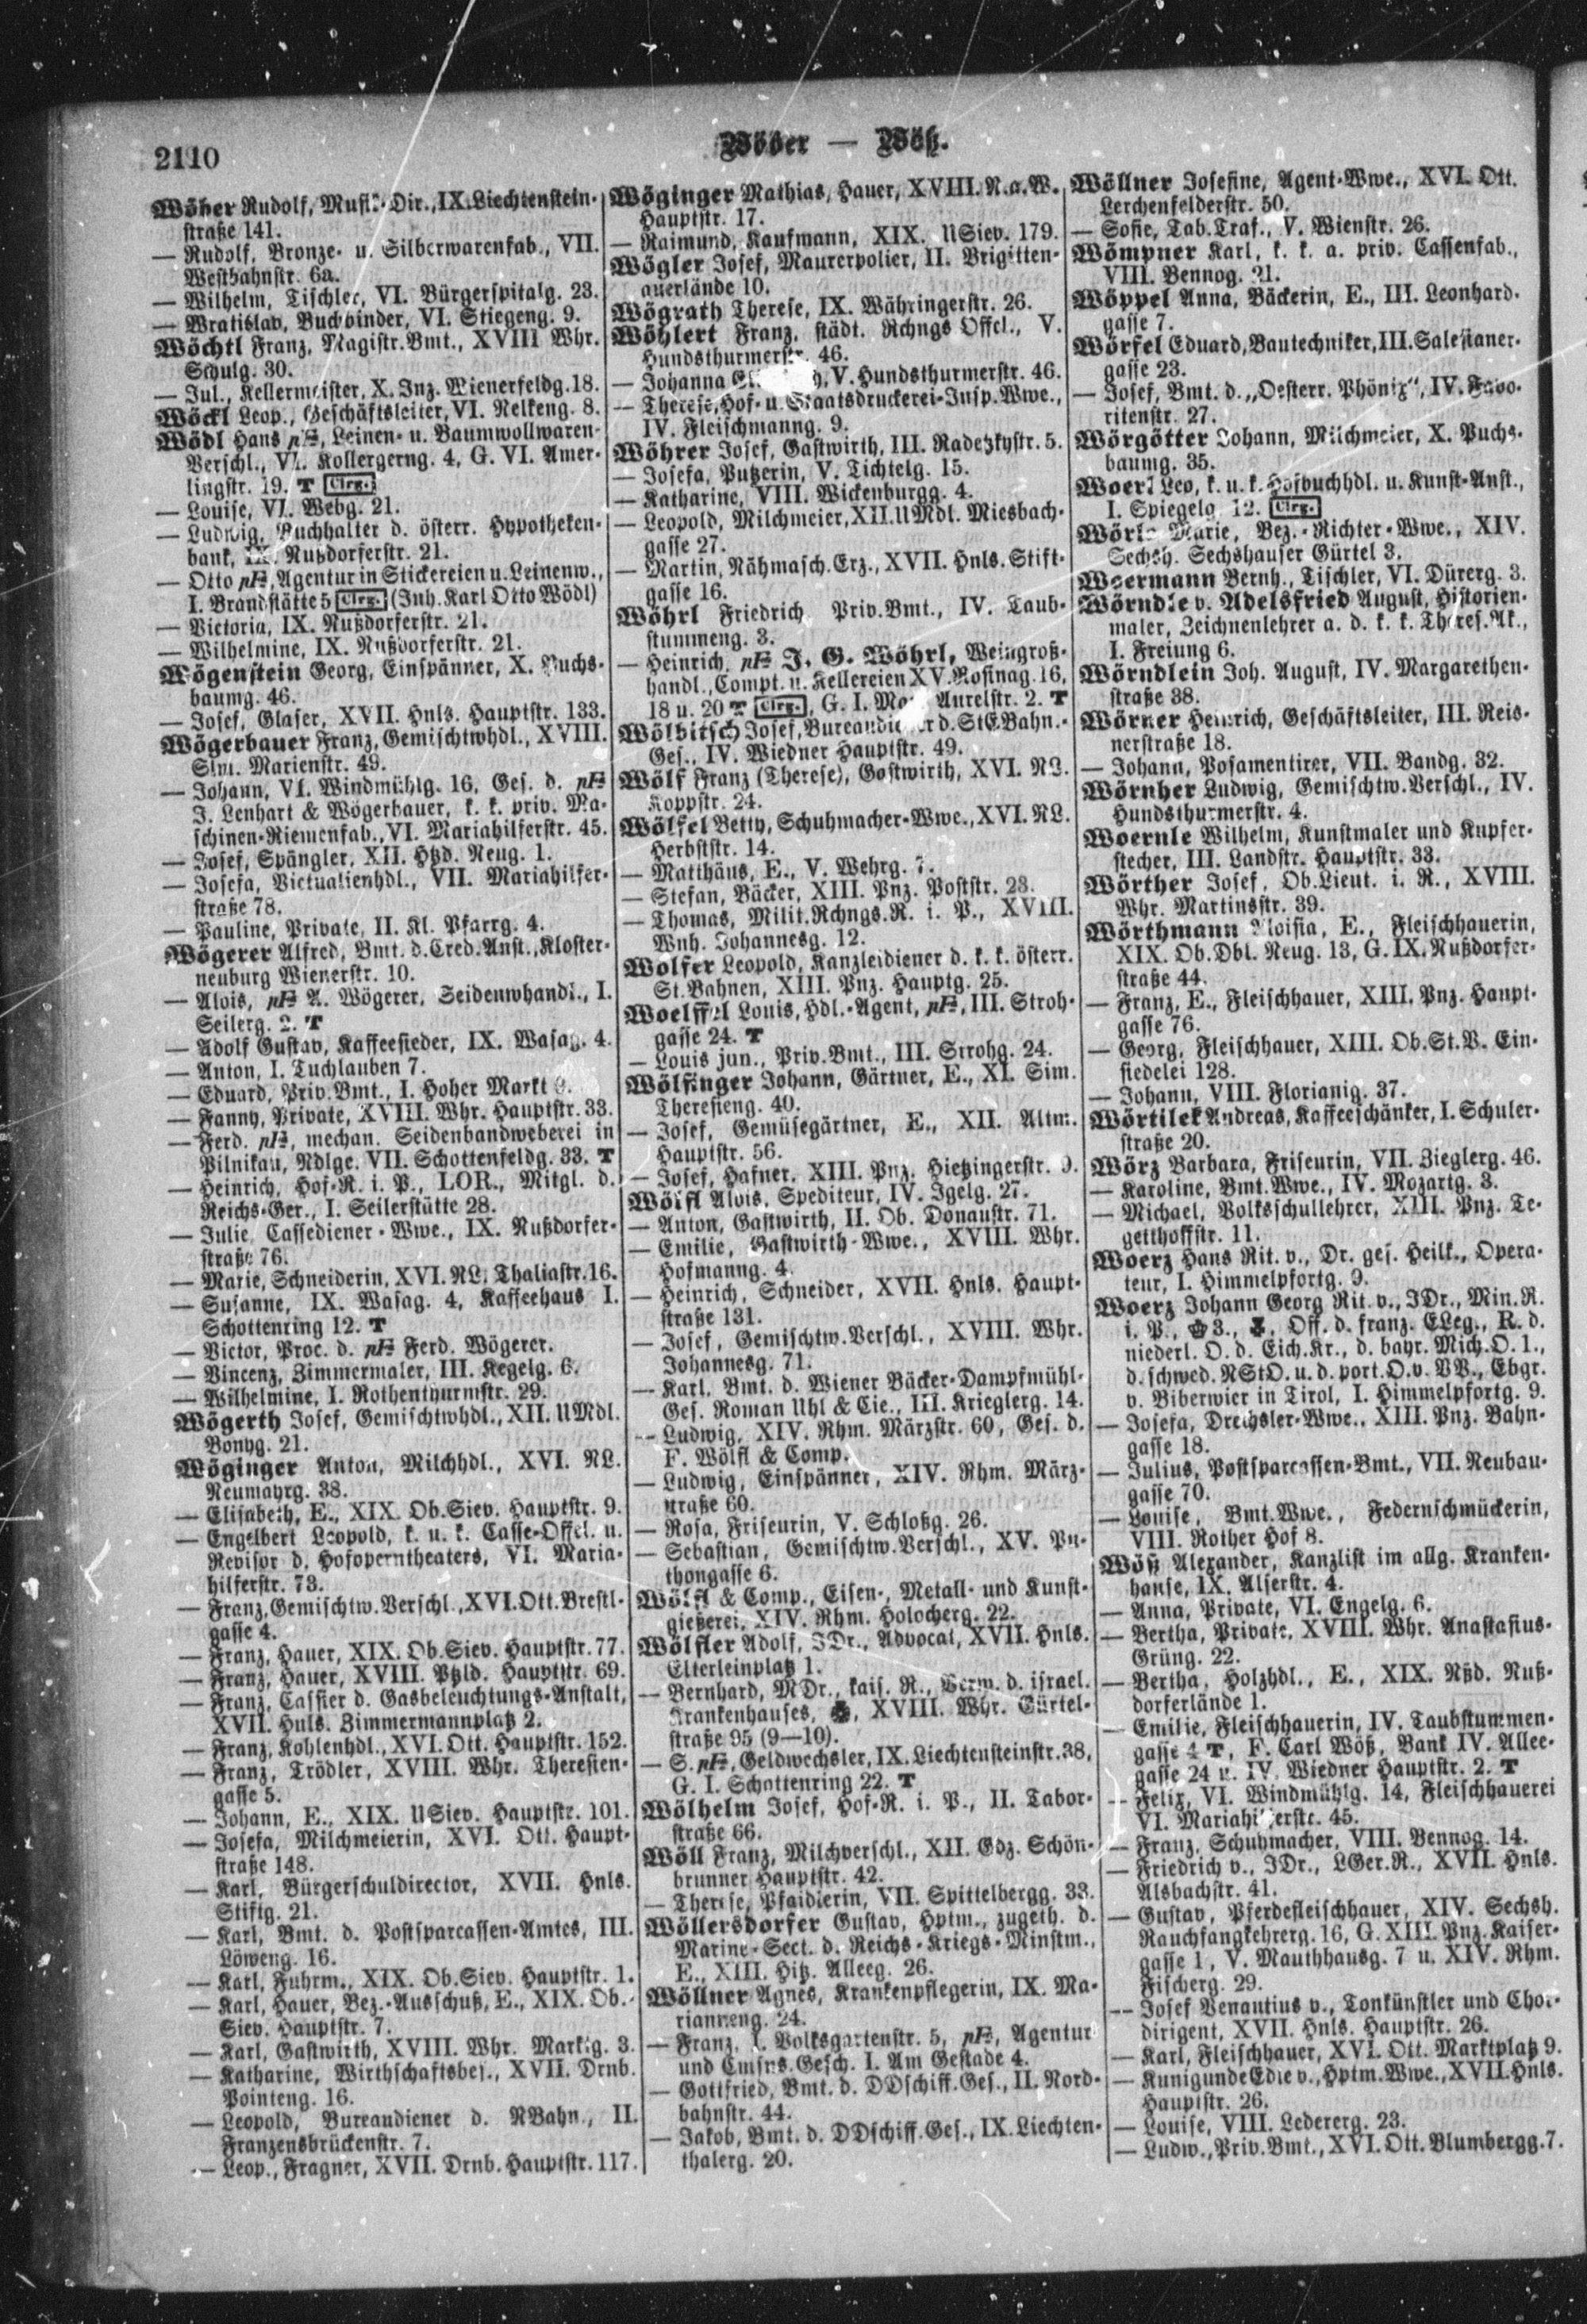 2110
Wöber — Wöß.
Wöber Rudolf, Musik-Dir., IX. Liechtenstein-
straße 141.
— Rudolf, Bronze- u. Silberwarenfab., VII.
Westbahnstr. 6a.
— Wilhelm, Tischler, VI. Bürgerspitalg. 23.
— Wratislav, Buchbinder, VI. Stiegeng. 9.
Wöchtl Franz, Magistr.Bmt., XVIII Whr.
Schulg. 30.
— Jul., Kellermeister, X. Inz. Wienerfeldg. 18.
Wöckl Leop., Geschäftsleiter, VI. Nelkeng. 8.
Wödl Hans pF, Leinen- u. Baumwollwaren-
Verschl., VI. Kollergerng. 4, G. VI. Amer-
lingstr. 19. T Clrg.
— Louise, VI. Webg. 21.
— Ludwig, Buchhalter d. österr. Hypotheken-
bank, IX. Nußdorferstr. 21.
— Otto pF, Agentur in Stickereien u. Leinenw.,
I. Brandstätte 5 Clrg. (Inh. Karl Otto Wödl)
— Victoria, IX. Nußdorferstr. 21.
— Wilhelmine, IX. Nußdorferstr. 21.
Wögenstein Georg, Einspänner, X. Puchs-
baumg. 46.
— Josef, Glaser, XVII. Hnls. Hauptstr. 133.
Wögerbauer Franz, Gemischtwhdl., XVIII.
Marienstr. 49.
— Johann, VI. Windmühlg. 16, Ges. d. pF
J. Lenhart & Wögerbauer, k. k. priv. Ma-
schinen-Riemenfab., VI. Mariahilferstr. 45.
— Josef, Spängler, XII. Htzd. Neug. 1.
— Josefa, Victualienhdl., VII. Mariahilfer-
straße 78.
— Pauline, Private, II. Kl. Pfarrg. 4.
Wögerer Alfred, Bmt. d. Cred.Anst., Kloster-
neuburg Wienerstr. 10.
— Alois, pF A. Wögerer, Seidenwhandl., I.
Seilerg. 2. T
— Adolf Gustav, Kaffeesieder, IX. Wasag. 4.
— Anton, I. Tuchlauben 7.
— Eduard, Priv.Bmt., I. Hoher Markt
— Fanny, Private, XVIII. Whr. Hauptstr. 33.
— Ferd. pF, mechan. Seidenbandweberei in
Pilnikau, Ndlge. VII. Schottenfeldg. 33. T
— Heinrich, Hof-R. i. P., LOR., Mitgl. d.
Reichs-Ger., I. Seilerstätte 28.
— Julie, Cassediener-Wwe., IX. Nußdorfer-
straße 76.
— Marie, Schneiderin, XVI. NL. Thaliastr. 16.
— Susanne, IX. Wasag. 4, Kaffeehaus I.
Schottenring 12. T
— Victor, Proc. d. pF Ferd. Wögerer.
— Vincenz, Zimmermaler, III. Kegelg. 6.
— Wilhelmine, I. Rothenthurmstr. 29.
Wögerth Josef, Gemischtwhdl., XII. UMdl.
Bonyg. 21.
Wöginger Anton, Milchhdl., XVI. NL.
Neumayrg. 38.
— Elisabeth, E., XIX. Ob.Siev. Hauptstr. 9.
— Engelbert Leopold, k. u. k. Casse-Offcl. u.
Revisor d. Hofoperntheaters, VI. Maria-
hilferstr. 73.
— Franz, Gemischtw.Verschl., XVI. Ott. Brestl-
gasse 4.
— Franz, Hauer, XIX. Ob.Siev. Hauptstr. 77.
— Franz, Hauer, XVIII. Ptzld. Hauptstr. 69.
— Franz, Cassier d. Gasbeleuchtungs-Anstalt,
XVII. Hnls. Zimmermannplatz 2.
— Franz, Kohlenhdl., XVI. Ott. Hauptstr. 152.
— Franz, Trödler, XVIII. Whr. Theresien-
gasse 5.
— Johann, E., XIX. USiev. Hauptstr. 101.
— Josefa, Milchmeierin, XVI. Ott. Haupt-
straße 148.
— Karl, Bürgerschuldirector, XVII. Hnls.
Stiftg. 21.
— Karl, Bmt. d. Postsparcassen-Amtes, III.
Löweng. 16.
— Karl, Fuhrm., XIX. Ob.Siev. Hauptstr. 1.
— Karl, Hauer, Bez.-Ausschuß, E., XIX. Ob.-
Siev. Hauptstr. 7.
— Karl, Gastwirth, XVIII. Whr. Marktg. 3.
— Katharine, Wirthschaftsbes., XVII. Drnb.
Pointeng. 16.
— Leopold, Bureaudiener d. NBahn, II.
Franzensbrückenstr. 7.
— Leop., Fragner, XVII. Drnb. Hauptstr. 117.
Wöginger Mathias, Hauer, XVIII. N.a.W.
Hauptstr. 17.
— Raimund, Kaufmann, XIX. USiev. 179.
Wögler Josef, Maurerpolier, II. Brigitten-
auerlände 10.
Wögrath Therese, IX. Währingerstr. 26.
Wöhlert Franz, städt. Rchngs Offcl., V.
Hundsthurmerstr. 46.
— Johanna V. Hundsthurmerstr. 46.
— Therese, Hof- u. Staatsdruckerei-Insp.Wwe.,
IV. Fleischmanng. 9.
Wöhrer Josef, Gastwirth, III. Radetzkystr. 5.
— Josefa, Putzerin, V. Tichtelg. 15.
— Katharine, VIII. Wickenburgg. 4.
— Leopold, Milchmeier, XII. UMdl. Miesbach-
gasse 27.
— Martin, Nähmasch.Erz., XVII. Hnls. Stift-
gasse 16.
Wöhrl Friedrich, Priv.Bmt., IV. Taub-
stummeng. 3.
— Heinrich, pF J. G. Wöhrl, Weingroß-
handl., Compt. u. Kellereien XV. Rosinag. 16,
18 u. 20 T Clrg., G. I. Aurelstr. 2. T
Wölbitsch Josef, Bureaudiener d. StEBahn.-
Ges., IV. Wiedner Hauptstr. 49.
Wölf Franz (Therese), Gastwirth, XVI. NL.
Koppstr. 24.
Wölfel Betty, Schuhmacher-Wwe., XVI. NL.
Herbststr. 14.
— Matthäus, E., V. Wehrg. 7.
— Stefan, Bäcker, XIII. Pnz. Poststr. 23.
— Thomas, Milit.Rchngs.R. i. P., XVIII.
Wnh. Johannesg. 12.
Wolfer Leopold, Kanzleidiener d. k. k. österr.
St.Bahnen, XIII. Pnz. Hauptg. 25.
Woelffel Louis, Hdl.-Agent, pF, III. Stroh-
gasse 24. T
— Louis jun., Priv.Bmt., III. Strohg. 24.
Wölfinger Johann, Gärtner, E., XI. Sim.
Theresieng. 40.
— Josef, Gemüsegärtner, E., XII. Altm.
Hauptstr. 56.
— Josef, Hafner, XIII. Pnz. Hietzingerstr. 9.
Wölfl Alois, Spediteur, IV. Igelg. 27.
— Anton, Gastwirth, II. Ob. Donaustr. 71.
— Emilie, Gastwirth-Wwe., XVIII. Whr.
Hofmanng. 4.
— Heinrich, Schneider, XVII. Hnls. Haupt-
straße 131.
— Josef, Gemischtw.Verschl., XVIII. Whr.
Johannesg. 71.
— Karl, Bmt. d. Wiener Bäcker-Dampfmühl-
Ges. Roman Uhl & Cie., III. Krieglerg. 14.
— Ludwig, XIV. Rhm. Märzstr. 60, Ges. d.
F. Wölfl & Comp.
— Ludwig, Einspänner, XIV. Rhm. März-
straße 60.
— Rosa, Friseurin, V. Schloßg. 26.
— Sebastian, Gemischtw.Verschl., XV. Py-
thongasse 6.
Wölfl & Comp., Eisen-, Metall- und Kunst-
gießerei, XIV. Rhm. Holocherg. 22.
Wölfler Adolf, JDr., Advocat, XVII. Hnls.
Elterleinplatz 1.
— Bernhard, MDr., kais. R., Verw. d. israel.
Krankenhauses, XVIII. Whr. Gürtel-
straße 95 (9—10).
— S. pF, Geldwechsler, IX. Liechtensteinstr. 38,
G. I. Schottenring 22. T
Wölhelm Josef, Hof-R. i. P., II. Tabor-
straße 66.
Wöll Franz, Milchverschl., XII. Gdz. Schön-
brunner Hauptstr. 42.
— Therese, Pfaidlerin, VII. Spittelbergg. 33.
Wöllersdorfer Gustav, Hptm., zugeth. d.
Marine-Sect. d. Reichs-Kriegs-Minstm.,
E., XIII. Hitz. Alleeg. 26.
Wöllner Agnes, Krankenpflegerin, IX. Ma-
rianneng. 24.
— Franz, I. Volksgartenstr. 5, pF, Agentur
und Cmsns.Gesch. I. Am Gestade 4.
— Gottfried, Bmt. d. DDschiff.Ges., II. Nord-
bahnstr. 44.
— Jakob, Bmt. d. DDschiff.Ges., IX. Liechten-
thalerg. 20.
Wöllner Josefine, Agent-Wwe., XVI. Ott.
Lerchenfelderstr. 50.
— Sofie, Tab.Traf., V. Wienstr. 26.
Wömpner Karl, k. k. a. priv. Cassenfab.,
VIII. Bennog. 21.
Wöppel Anna, Bäckerin, E., III. Leonhard-
gasse 7.
Wörfel Eduard, Bautechniker, III. Salesianer-
gasse 23.
— Josef, Bmt. d. „Oesterr. Phönix“, IV. Favo-
ritenstr. 27.
Wörgötter Johann, Milchmeier, X. Puchs-
baumg. 35.
Woerl Leo, k. u. k. Hofbuchhdl. u. Kunst-Anst.,
I. Spiegelg. 12. Clrg.
Marie, Bez.-Richter-Wwe., XIV.
Sechsh. Sechshauser Gürtel 3.
Woermann Bernh., Tischler, VI. Dürerg. 3.
Wörndle v. Adelsfried August, Historien-
maler, Zeichnenlehrer a. d. k. k. Theres.Ak.,
I. Freiung 6.
Wörndlein Joh. August, IV. Margarethen-
straße 38.
Wörner Heinrich, Geschäftsleiter, III. Reis-
nerstraße 18.
— Johann, Posamentirer, VII. Bandg. 32.
Wörnher Ludwig, Gemischtw.Verschl., IV.
Hundsthurmerstr. 4.
Woernle Wilhelm, Kunstmaler und Kupfer-
stecher, III. Landstr. Hauptstr. 33.
Wörther Josef, Ob.Lieut. i. R., XVIII.
Whr. Martinsstr. 39.
Wörthmann Aloisia, E., Fleischhauerin,
XIX. Ob.Dbl. Neug. 13, G. IX. Nußdorfer-
straße 44.
— Franz, E., Fleischhauer, XIII. Pnz. Haupt-
gasse 76.
— Georg, Fleischhauer, XIII. Ob.St.V. Ein-
siedelei 128.
— Johann, VIII. Florianig. 37.
Wörtilek Andreas, Kaffeeschänker, I. Schuler-
straße 20.
Wörz Barbara, Friseurin, VII. Zieglerg. 46.
— Karoline, Bmt.Wwe., IV. Mozartg. 3.
— Michael, Volksschullehrer, XIII. Pnz. Te-
getthoffstr. 11.
Woerz Hans Rit. v., Dr. ges. Heilk., Opera-
teur, I. Himmelpfortg. 9.
Woerz Johann Georg Rit. v., JDr., Min.R.
i. P., 3., Off. d. franz. ELeg., R. d.
niederl. O. d. Eich.Kr., d. bayr. Mich.O. 1.,
d. schwed. NStO. u. d. port. O. v. VV., Ebgr.
v. Biberwier in Tirol, I. Himmelpfortg. 9.
— Josefa, Drechsler-Wwe., XIII. Pnz. Bahn-
gasse 18.
— Julius, Postsparcassen-Bmt., VII. Neubau-
gasse 70.
— Louise, Bmt.Wwe., Federnschmückerin,
VIII. Rother Hof 8.
Wöß Alexander, Kanzlist im allg. Kranken-
hause, IX. Alserstr. 4.
— Anna, Private, VI. Engelg. 6.
— Bertha, Private, XVIII. Whr. Anastasius-
Grüng. 22.
— Bertha, Holzhdl., E., XIX. Nßd. Nuß-
dorferlände 1.
— Emilie, Fleischhauerin, IV. Taubstummen-
gasse 4 T, F. Carl Wöß, Bank IV. Allee-
gasse 24 u. IV. Wiedner Hauptstr. 2. T
— Felix, VI. Windmühlg. 14, Fleischhauerei
VI. Mariahilferstr. 45.
— Franz, Schuhmacher, VIII. Bennog. 14.
— Friedrich v., JDr., LGer.R., XVII. Hnls.
Alsbachstr. 41.
— Gustav, Pferdefleischhauer, XIV. Sechsh.
Rauchfangkehrerg. 16, G. XIII. Pnz. Kaiser-
gasse 1, V. Mauthhausg. 7 u. XIV. Rhm.
Fischerg. 29.
— Josef Venantius v., Tonkünstler und Chor-
dirigent, XVII. Hnls. Hauptstr. 26.
— Karl, Fleischhauer, XVI. Ott. Marktplatz 9.
— Kunigunde Edle v., Hptm.Wwe., XVII. Hnls.
Hauptstr. 26.
— Louise, VIII. Ledererg. 23.
— Ludw., Priv.Bmt., XVI. Ott. Blumbergg. 7.